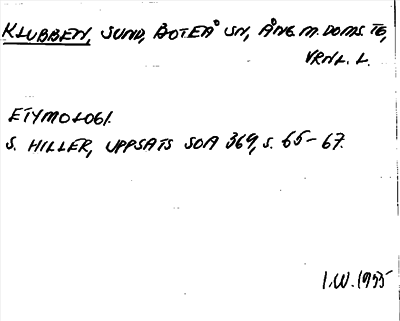 KLUBBEN, SUND, BOTEÅ SN, ÅNG. M. DOMS. TG,
VRNL. L.
ETYMOLOGI.
S. HILLER, UPPSATS SOA 369, S. 65-67.
I.W. 1955